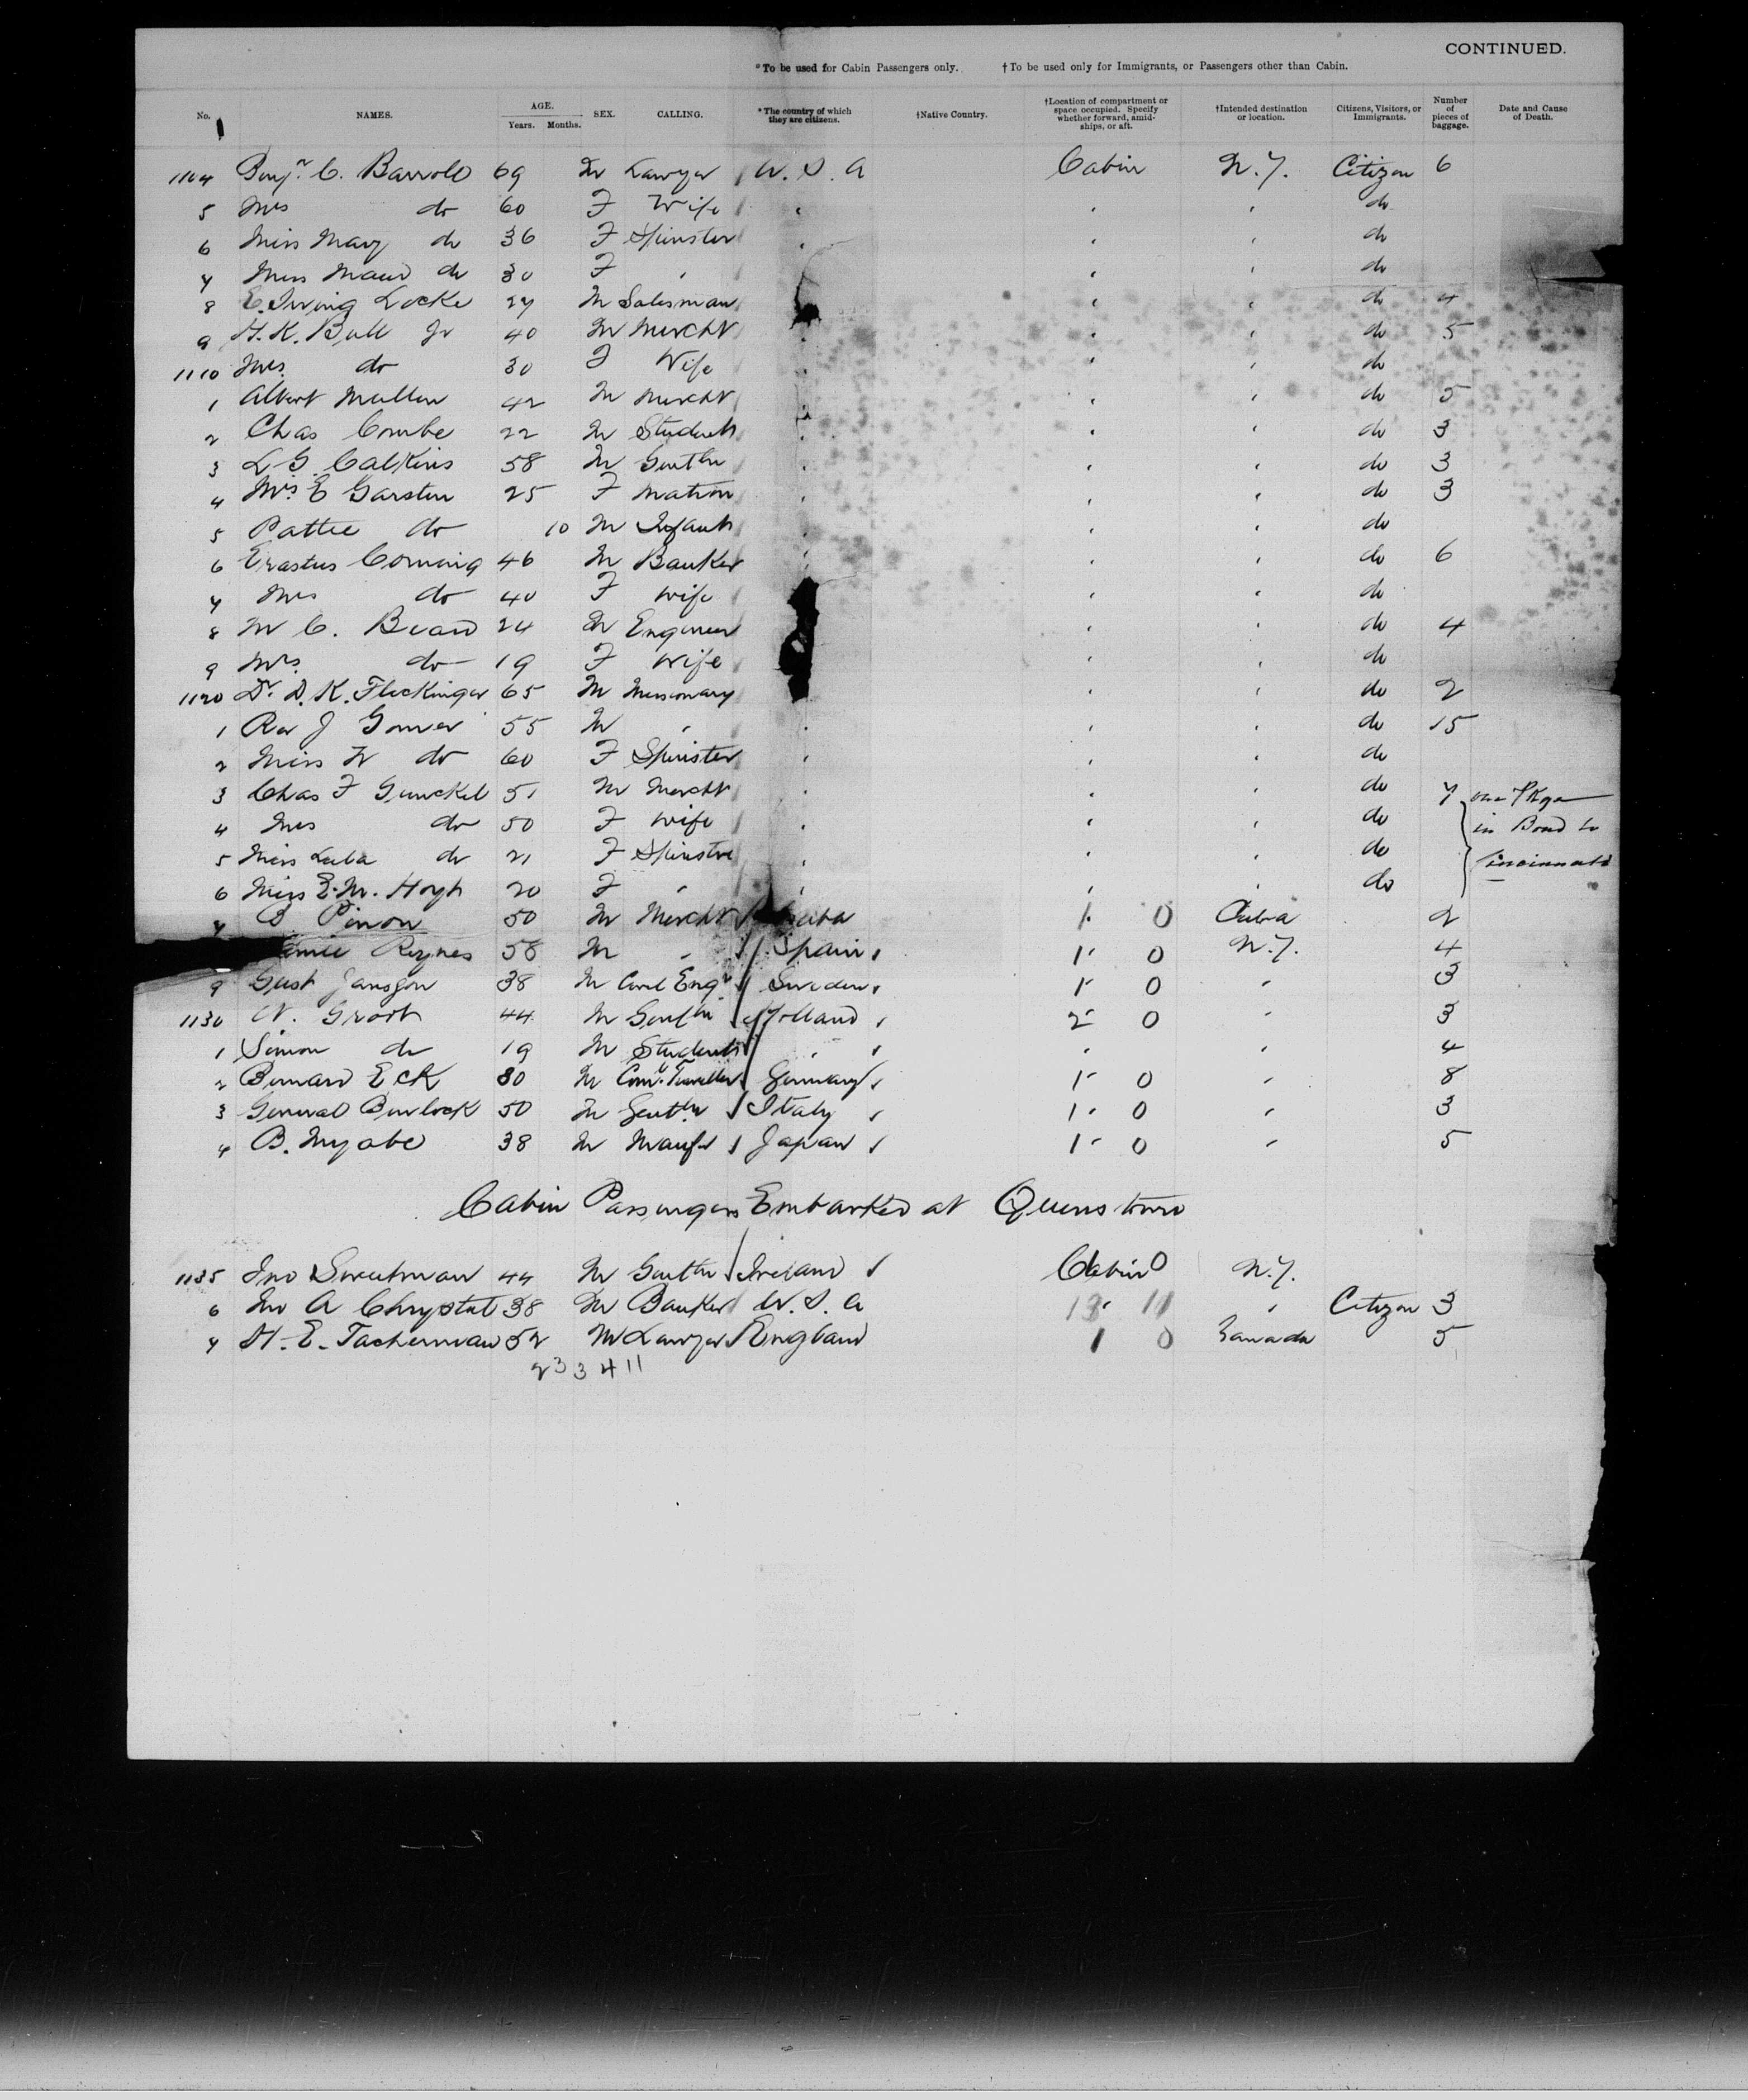 CONTINUED.
*To be used for Cabin Passengers only. †To be used only for Immigrants, or Passengers other than Cabin.
No. NAMES. AGE. Years. Months. SEX. CALLING. *The country of which they are citizens. †Native Country. †Location of compartment or space occupied. Specify whether forward, amidships, or aft. †Intended destination or location. Citizens, Visitors, or Immigrants. Number of pieces of baggage. Date and Cause of Death.
1104 Benjn. C. Barroll 69 M Lawyer U. S. A Cabin N.Y. Citizen 6
5 Mrs do 60 F Wife " " " do
6 Miss Mary do 36 F Spinster " " " do
7 Miss Maud do 30 F " " " " do
8 E. Irving Locke 27 M Salesman " " " do 4
9 H. K. Bull Jr 40 M Mercht " " " do 5
1110 Mrs. do 30 F Wife " " " do
1 Albert Mullen 42 M Mercht " " " do 5
2 Chas Combe 22 M Student " " " do 3
3 L G. Calkins 58 M Gentln " " " do 3
4 Mrs E Garsten 25 F Matron " " " do 3
5 Pattie do 10 M Infant " " " do
6 Erastus Corning 46 M Banker " " " do 6
7 Mrs do 40 F Wife " " do
8 M C. Beard 24 M Engineer " " do 4
9 Mrs. do 19 F Wife " " do
1120 Dr. D. K. Flickinger 65 M Missionary " " do 2
1 Rev J Gomer 55 M " " " " do 15
2 Miss W do 60 F Spinster " " " do
3 Chas F Gunckel 51 M Mercht " " " do 7 one Pkge
4 Mrs do 50 F Wife " " " do in Bond to
5 Miss Luba do 21 F Spinstr " " " do Cincinnati
6 Miss E. M. Hoyt 20 F " " " " do
7 B Pinon 50 M Mercht Cuba 1 0 Cuba 2
Reynes 58 M " Spain 1 0 N.Y. 4
9 Gust Jansson 38 M Civil Engr Sweden 1 0 " 3
1130 N. Groot 44 M Gentln Holland 2 0 " 3
1 Simon do 19 M Student " " " 4
2 Bernard Eck 30 M Coml. Traveller Germany 1 0 " 8
3 General Burlock 50 M Gentln Italy 1 0 " 3
4 B. Myabe 38 M Manufr Japan 1 0 " 5
Cabin Passengers Embarked at Queenstown
1135 Jno Sweetman 44 M Gentln Ireland Cabin 0 N.Y.
6 Wm A Chrystal 38 M Banker U. S. A 13 11 " Citizen 3
7 H. E. Tacherman 52 M Lawyer England 1 0 Canada 5
2 3 3 4 11